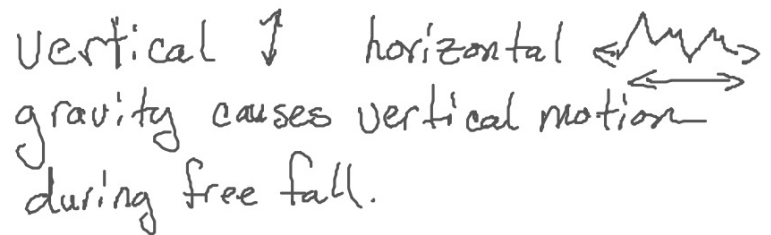 vertical ↕ horizontal ↔
gravity causes vertical motion
during free fall.